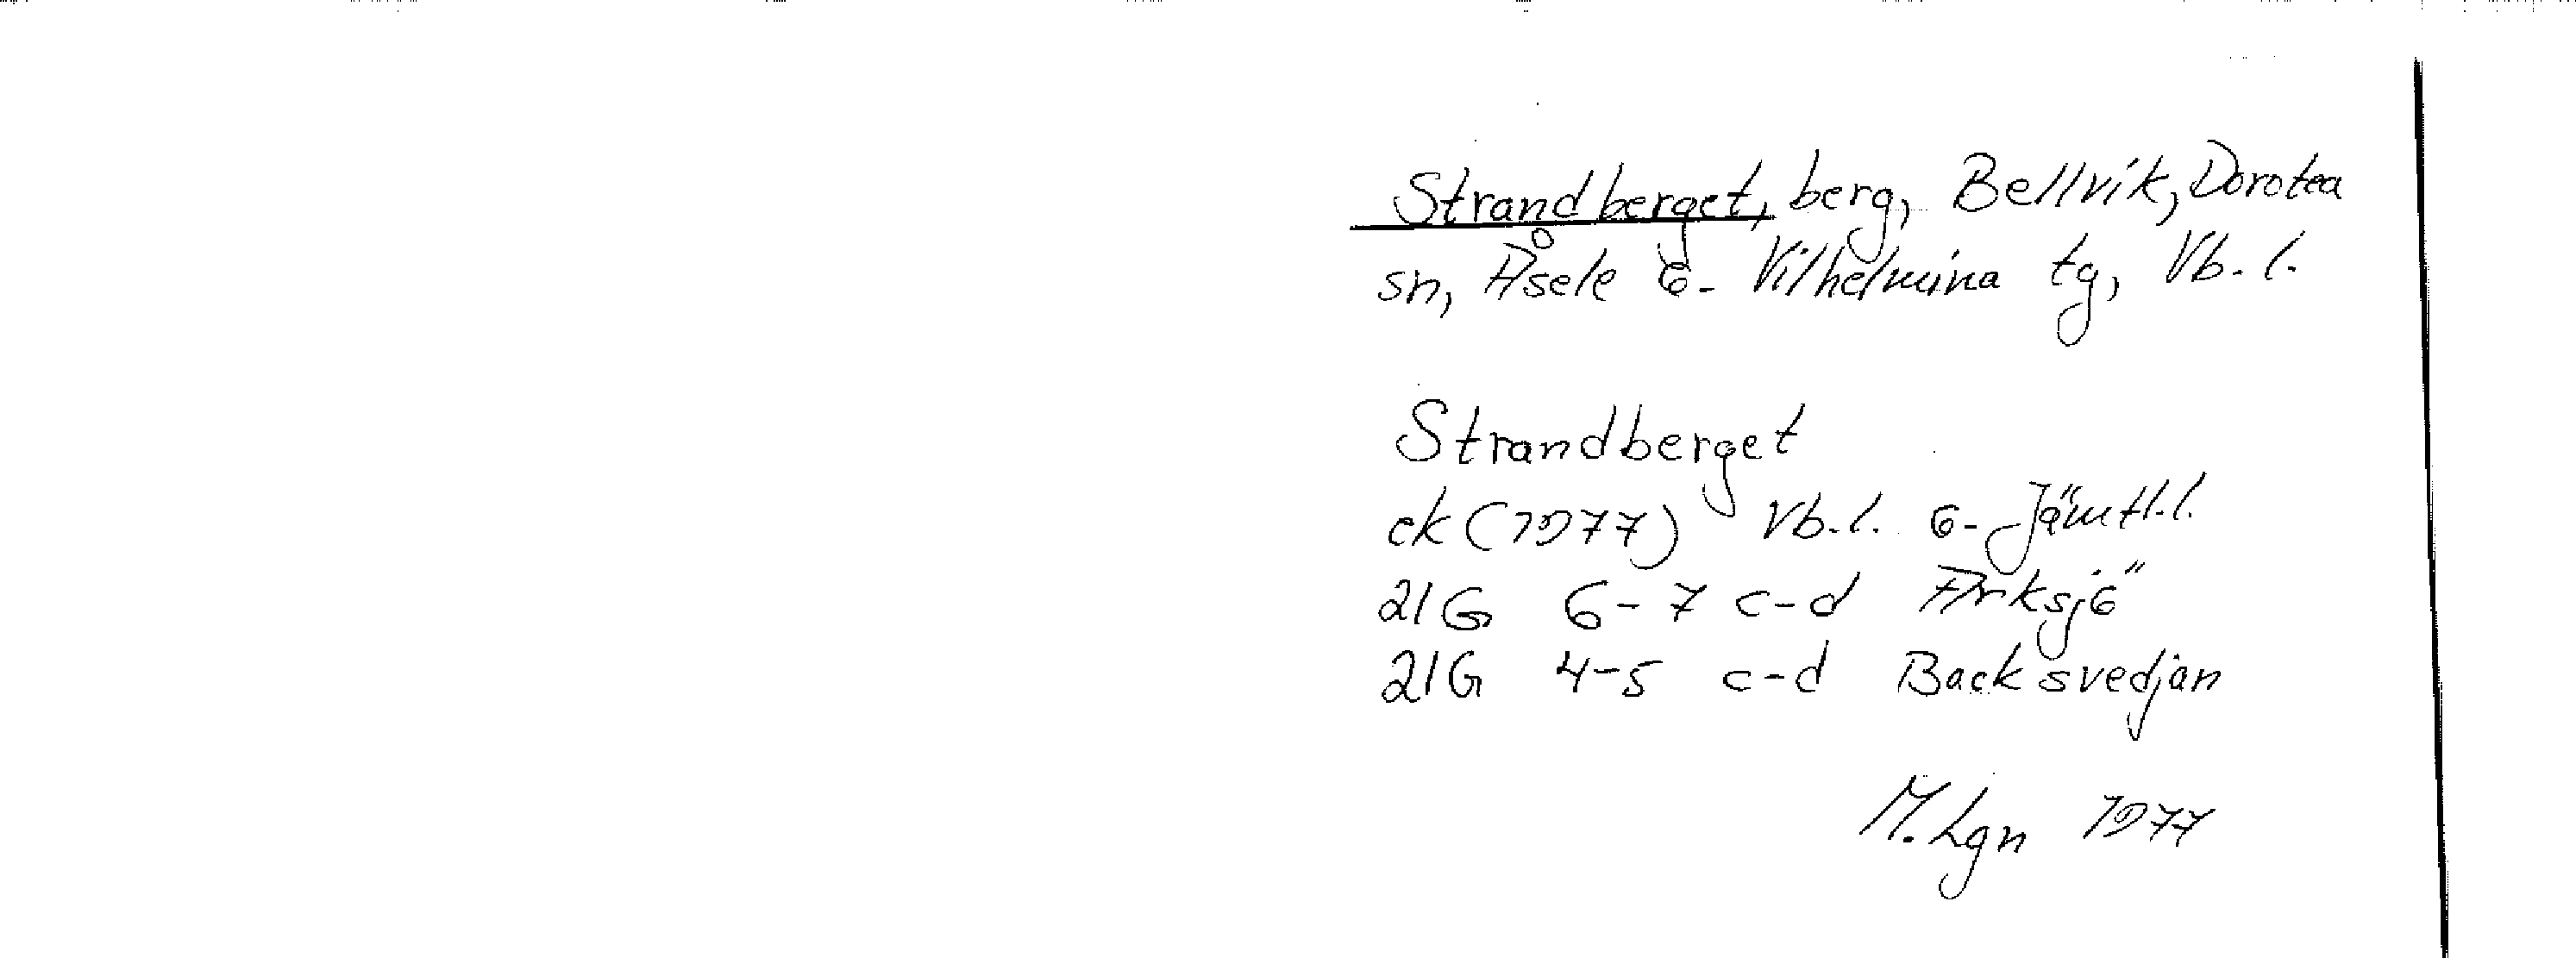 Strandberget, berg, Bellvik, Dorotea
sn, Åsele o. Vilhelmina tg, Vb. l.
Strandberget
ek (1977) Vb. l. o. Jämtl. l.
21G 6-7 c-d Arksjö
21G 4-5 c-d Backsvedjan
M. Lgn 1977